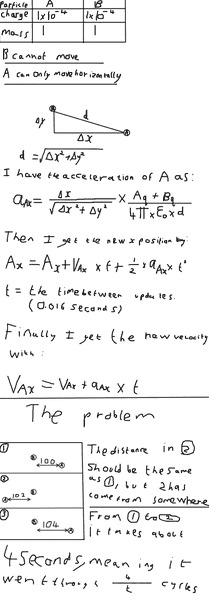 Particle A B
charge 1x10⁻⁴ 1x10⁻⁴
mass 1 1
B cannot move
A can only move horizontally
B
Δy d
A
Δx
d = √Δx² + Δy²
I have the acceleration of A as:
a_Ax = Δx / √Δx² + Δy² × A_q + B_q / 4π × E₀ × d
Then I get the new x position by:
A_x = A_x + V_Ax × t + 1/2 × a_Ax × t²
t = the time between updates.
(0.016 seconds)
Finally I get the new velocity
with:
V_Ax = V_Ax + a_Ax × t
The problem
① B 100 A
② B 102 A
③ B 104 A
The distance in ②
should be the same
as ①, but 2 has
come from somewhere
From ① to ②
it takes about
4 seconds, meaning it
went through 4/t cycles